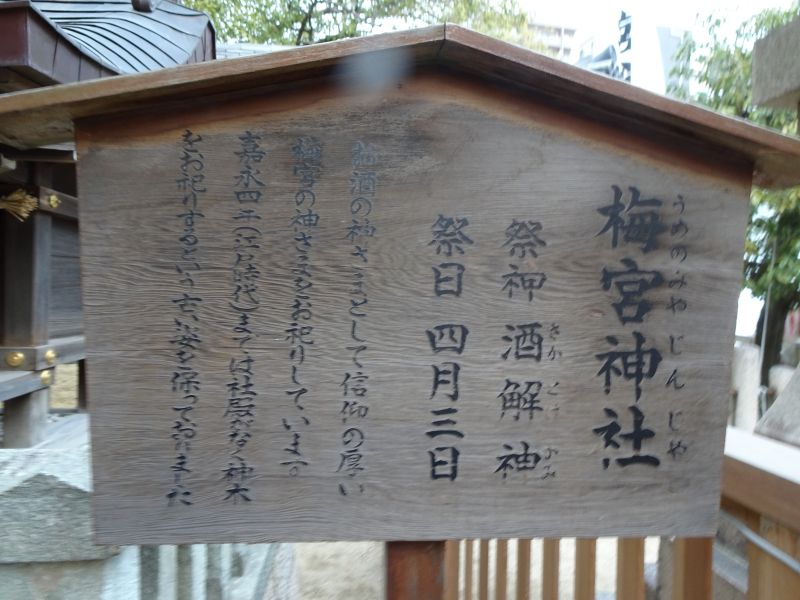 うめのみやじんじゃ
梅宮神社
祭神 酒解神
さかとけかみ
祭日 四月三日
梅酒の神さまとして信仰の厚い
梅宮の神さまをお祀りしています
嘉永四年(江戸時代)までは社殿がなく神木
をお祀りするという古い姿を保っておりました
宮